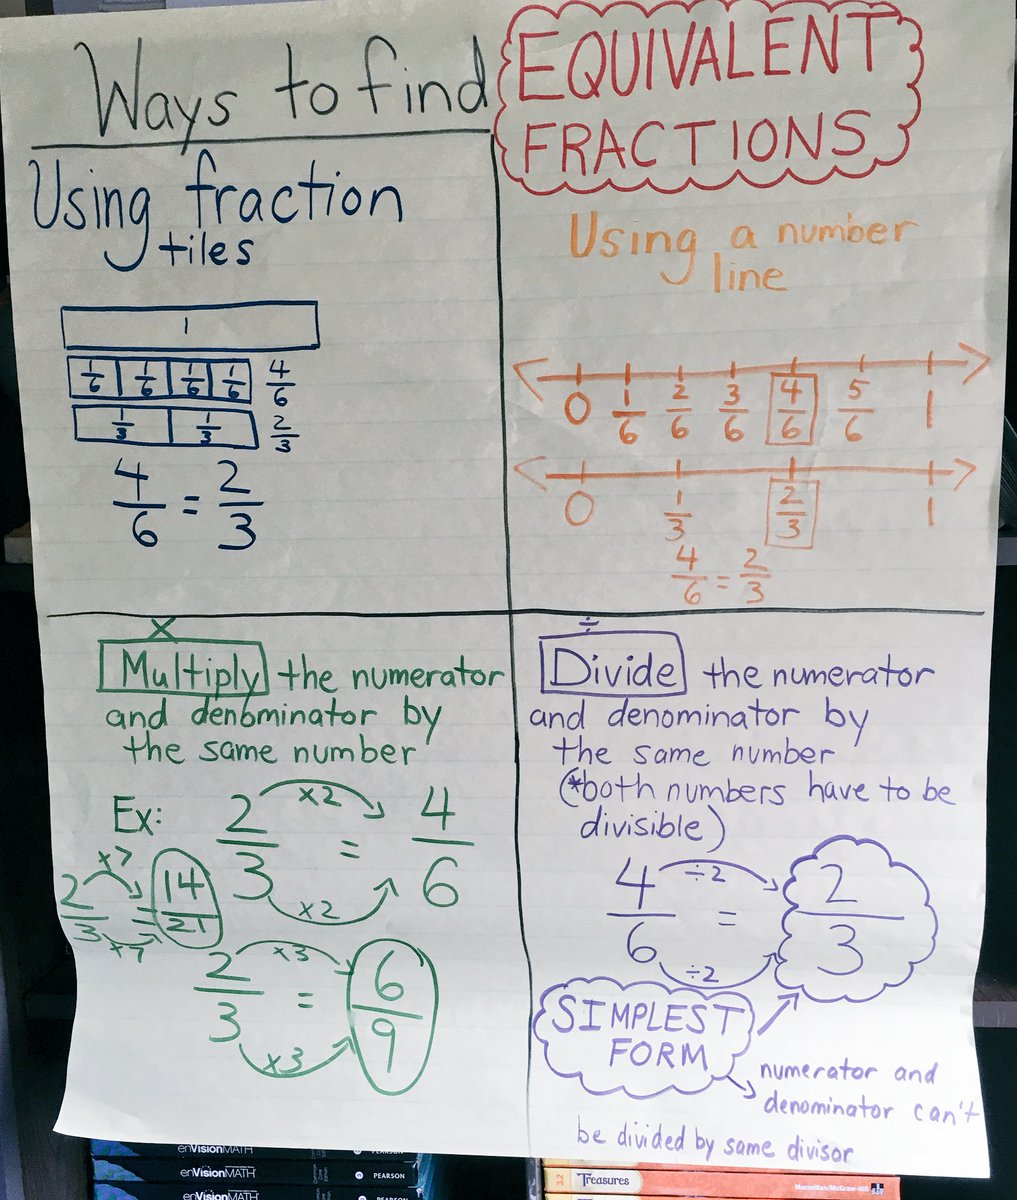 Ways to find
EQUIVALENT
FRACTIONS
Using fraction
tiles
1
1/6 1/6 1/6 1/6 4/6
1/3 1/3 2/3
4/6 = 2/3
Using a number
line
0 1/6 2/6 3/6 4/6 5/6 1
0 1/3 2/3 1
4/6 = 2/3
×
Multiply the numerator
and denominator by
the same number
Ex: 2/3 = 4/6
×2
×2
2/3 = 14/21
×7
×7
2/3 = 6/9
×3
×3
÷
Divide the numerator
and denominator by
the same number
(*both numbers have to be
divisible)
4/6 = 2/3
÷2
÷2
SIMPLEST
FORM
numerator and
denominator can't
be divided by same divisor
enVisionMATH PEARSON
enVisionMATH PEARSON
enVisionMATH
3.2 Treasures Macmillan/McGraw-Hill